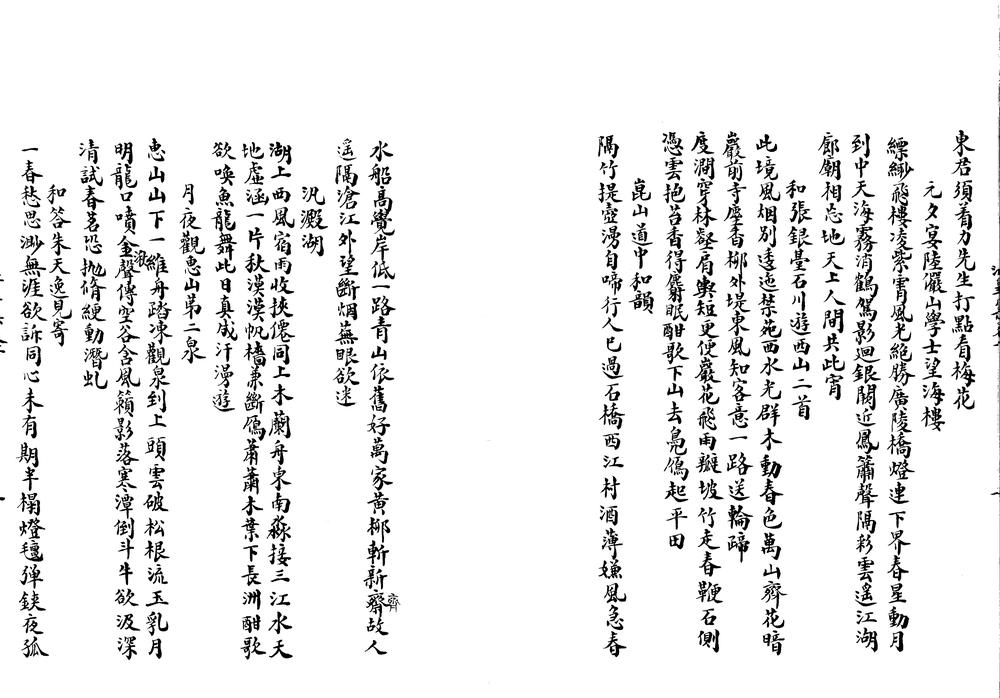 東君須着力先生打點看梅花
元夕宴陸儼山學士望海樓
縹緲飛樓凌紫霄風光絕勝廣陵橋燈連下界春星動月
到中天海霧消鶴駕影迴銀闕近鳳簫聲隔彩雲遥江湖
廊廟相忘地天上人間共此宵
和張銀臺石川遊西山二首
此境風烟別逶迤禁苑西水光群木動春色萬山齊花暗
巖前寺塵香柳外堤東風知客意一路送輪蹄
度澗穿林壑肩輿短更便巖花飛雨瓣坡竹走春鞭石側
憑雲抱苔香得麝眠酣歌下山去鳧鴈起平田
崑山道中和韻
隔竹提壺湯自啼行人已過石橋西江村酒薄嫌風急春
水船高覺岸低一路青山依舊好萬家黃柳斬新齊故人
齊
遥隔滄江外望斷烟蕪眼欲迷
汎澱湖
湖上西風宿雨收挾僊同上木蘭舟東南淼接三江水天
地虛涵一片秋漠漠帆檣兼斷鴈蕭蕭木葉下長洲酣歌
欲喚魚龍舞此日真成汗漫遊
月夜觀惠山第二泉
惠山山下一維舟踏凍觀泉到上頭雲破松根流玉乳月
明龍口噴金聲傳空谷含風籟影落寒潭倒斗牛欲汲深
清試春茗恐抛脩綆動潛虬
和答朱天逸見寄
一春愁思渺無涯欲訴同心未有期半榻燈氊彈鋏夜孤